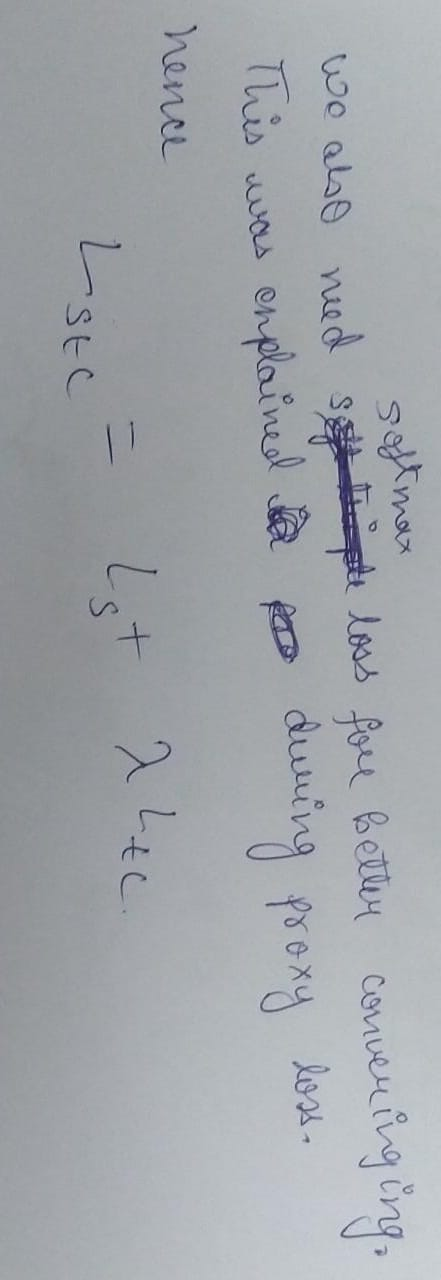 softmax
we also need loss for better converinging.
This was explained during proxy loss.
hence
L_stc = L_s + λ L_tc.